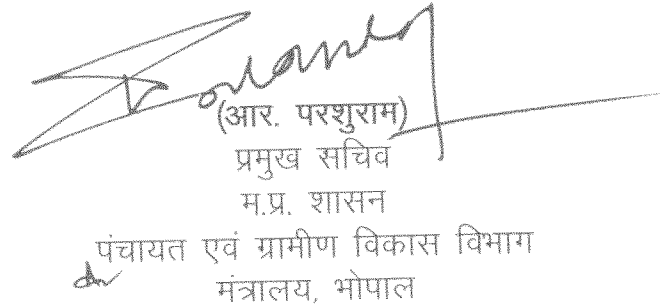 (आर. परशुराम)
प्रमुख सचिव
म.प्र. शासन
पंचायत एवं ग्रामीण विकास विभाग
मंत्रालय, भोपाल